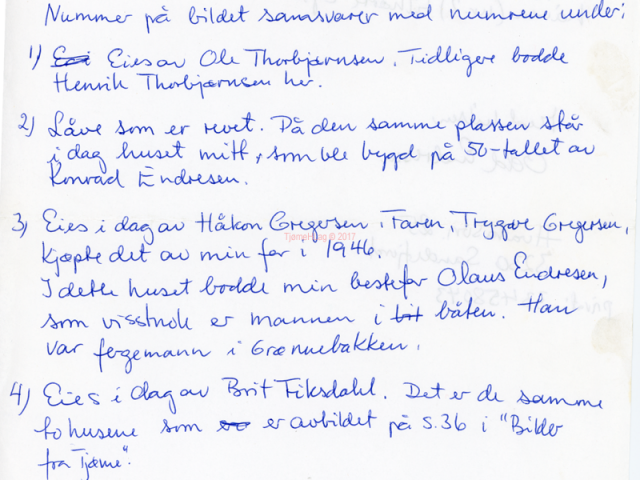 Nummer på bildet samsvarer med numrene under:
1) Eies av Ole Thorbjørnsen. Tidligere bodde
Henrik Thorbjørnsen her.
2) Låve som er revet. På den samme plassen står
i dag huset mitt, som ble bygd på 50-tallet av
Konrad Endresen.
3) Eies i dag av Håkon Gregersen. Faren, Trygve Gregersen,
Tjømeblog © 2017
kjøpte det av min far i 1946
I dette huset bodde min bestefar Olaus Endresen,
som visstnok er mannen i båten. Han
var fergemann i Grønnebakken.
4) Eies i dag av Brit Fiksdahl. Det er de samme
to husene som er avbildet på s.36 i "Bilder
fra Tjøme".